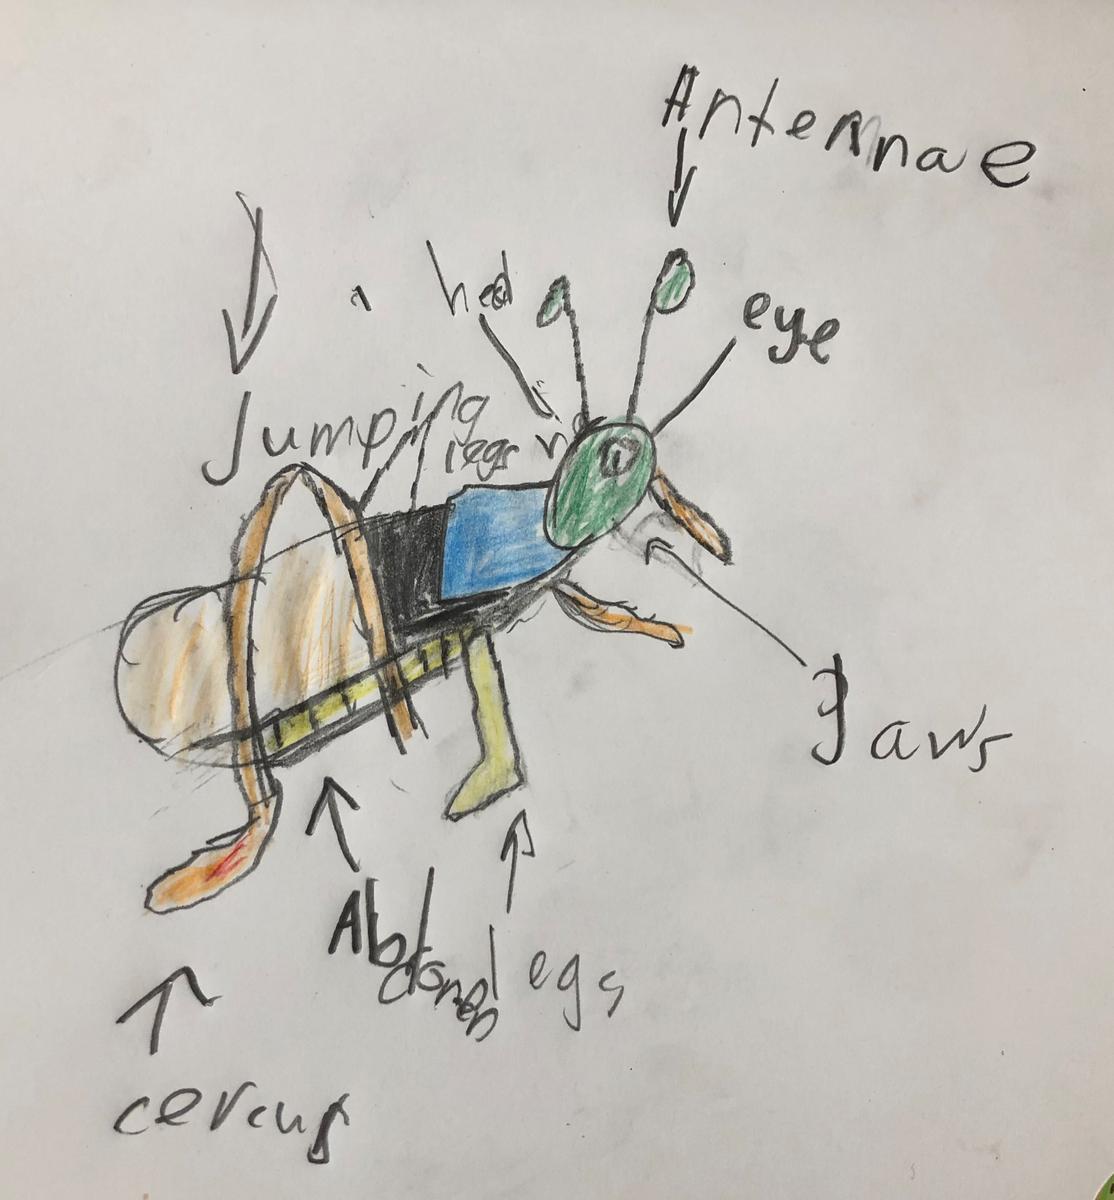 Antennae
hed
eye
Jumping
legs
Jaws
Abdomen
legs
cercus